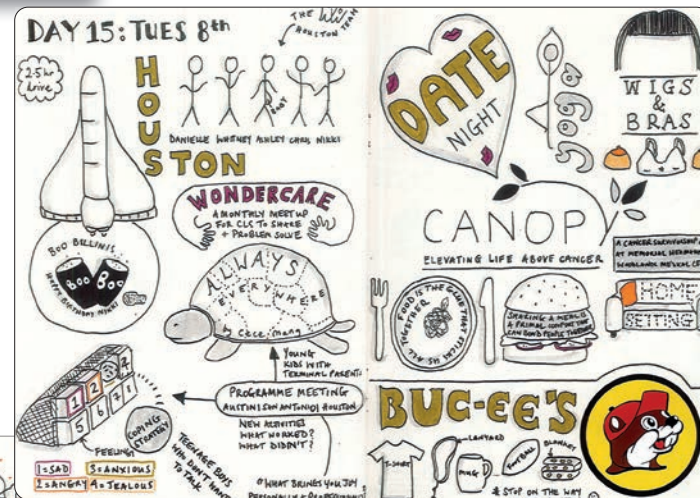 DAY 15: TUES 8th
2.5 hr
drive
THE
HOUSTON TEAM
HOUSTON
BABY
DANIELLE WHITNEY ASHLEY CHRIS NIKKI
WONDERCARE
A MONTHLY MEET UP
FOR CLS TO SHARE
+ PROBLEM SOLVE
BOO BELLINIS
BOO
BOO
HAPPY BIRTHDAY NIKKI
ALWAYS
EVERYWHERE
YOUNG
KIDS WITH
TERMINAL PARENT
PROGRAMME MEETING
AUSTIN|SAN ANTONIO|HOUSTON
NEW ACTIVITIES
WHAT WORKED?
WHAT DIDN'T?
"WHAT BRINGS YOU JOY
1
2
5
6
7
8
COPING
STRATEGY
FEELING
1=SAD 3=ANXIOUS
2=ANGRY 4=JEALOUS
TEENAGE BOYS
WHO DON'T WANT
TO TALK
DATE
NIGHT
yoga
WIGS
&
BRAS
CANOPY
ELEVATING LIFE ABOVE CANCER
A CANCER SURVIVORSHIP
AT MEMORIAL HERMANN
WOODLANDS MEDICAL CE
FOOD IS THE GLUE THAT STICKS US ALL TOGETHER
SHARING A MEAL IS
A PRIMAL COMFORT THAT
CAN BOND PEOPLE TOGETHER
HOME
SETTING
BUC-EE'S
T-SHIRT
LANYARD
MUG
FOOTBALL
BLANKET
& STOP ON THE WAY